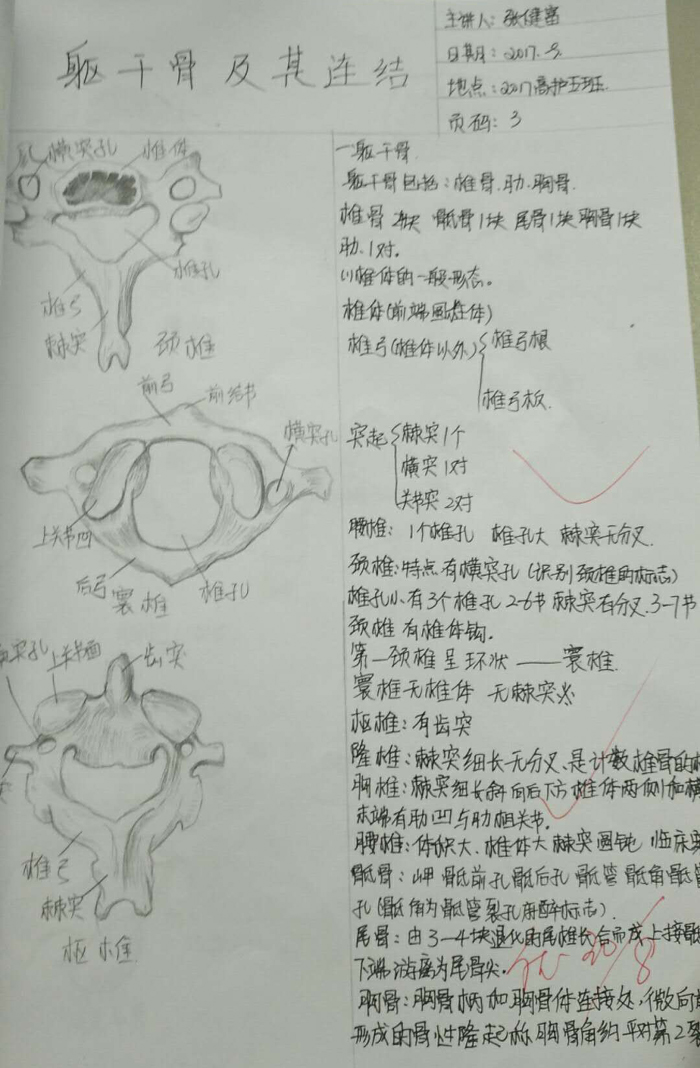 躯干骨及其连结
主讲人：张健富
日期：2017.9.
地点：2017高护五班
页码：3
孔 横突孔 椎体
椎孔
椎弓
棘突 颈椎
前弓 前结节
横突孔
上关节凹
后弓 椎孔
寰椎
突孔 上关节面 齿突
椎弓
棘突
枢椎
一躯干骨
躯干骨包括：椎骨.肋.胸骨.
椎骨 块 骶骨1块 尾骨1块 胸骨1块
肋.1对。
(1)椎体的一般形态。
椎体(前端圆柱体)
椎弓(椎体以外){椎弓根
椎弓板.
突起{棘突1个
横突1对
关节突2对
腰椎：1个椎孔 椎孔大 棘突无分叉.
颈椎：特点有横突孔(识别颈椎的标志)
椎孔小.有3个椎孔 2-6节 棘突有分叉.3-7节
颈椎有椎体钩.
第一颈椎呈环状——寰椎.
寰椎无椎体 无棘突
枢椎：有齿突
隆椎：棘突细长无分叉、是计数椎骨的
胸椎：棘突细长斜向后下方 椎体两侧和横
末端有肋凹与肋相关节.
腰椎：体积大、椎体大 棘突圆钝 临床
骶骨：岬 骶前孔 骶后孔 骶管 骶角 骶管
孔(骶角为骶管裂孔麻醉标志).
尾骨：由3-4块退化的尾椎长合而成 上接骶
下端游离为尾骨尖.
胸骨：胸骨柄加胸骨体连接处，微向
形成的骨性隆起称胸骨角约平对第2
优 20/8